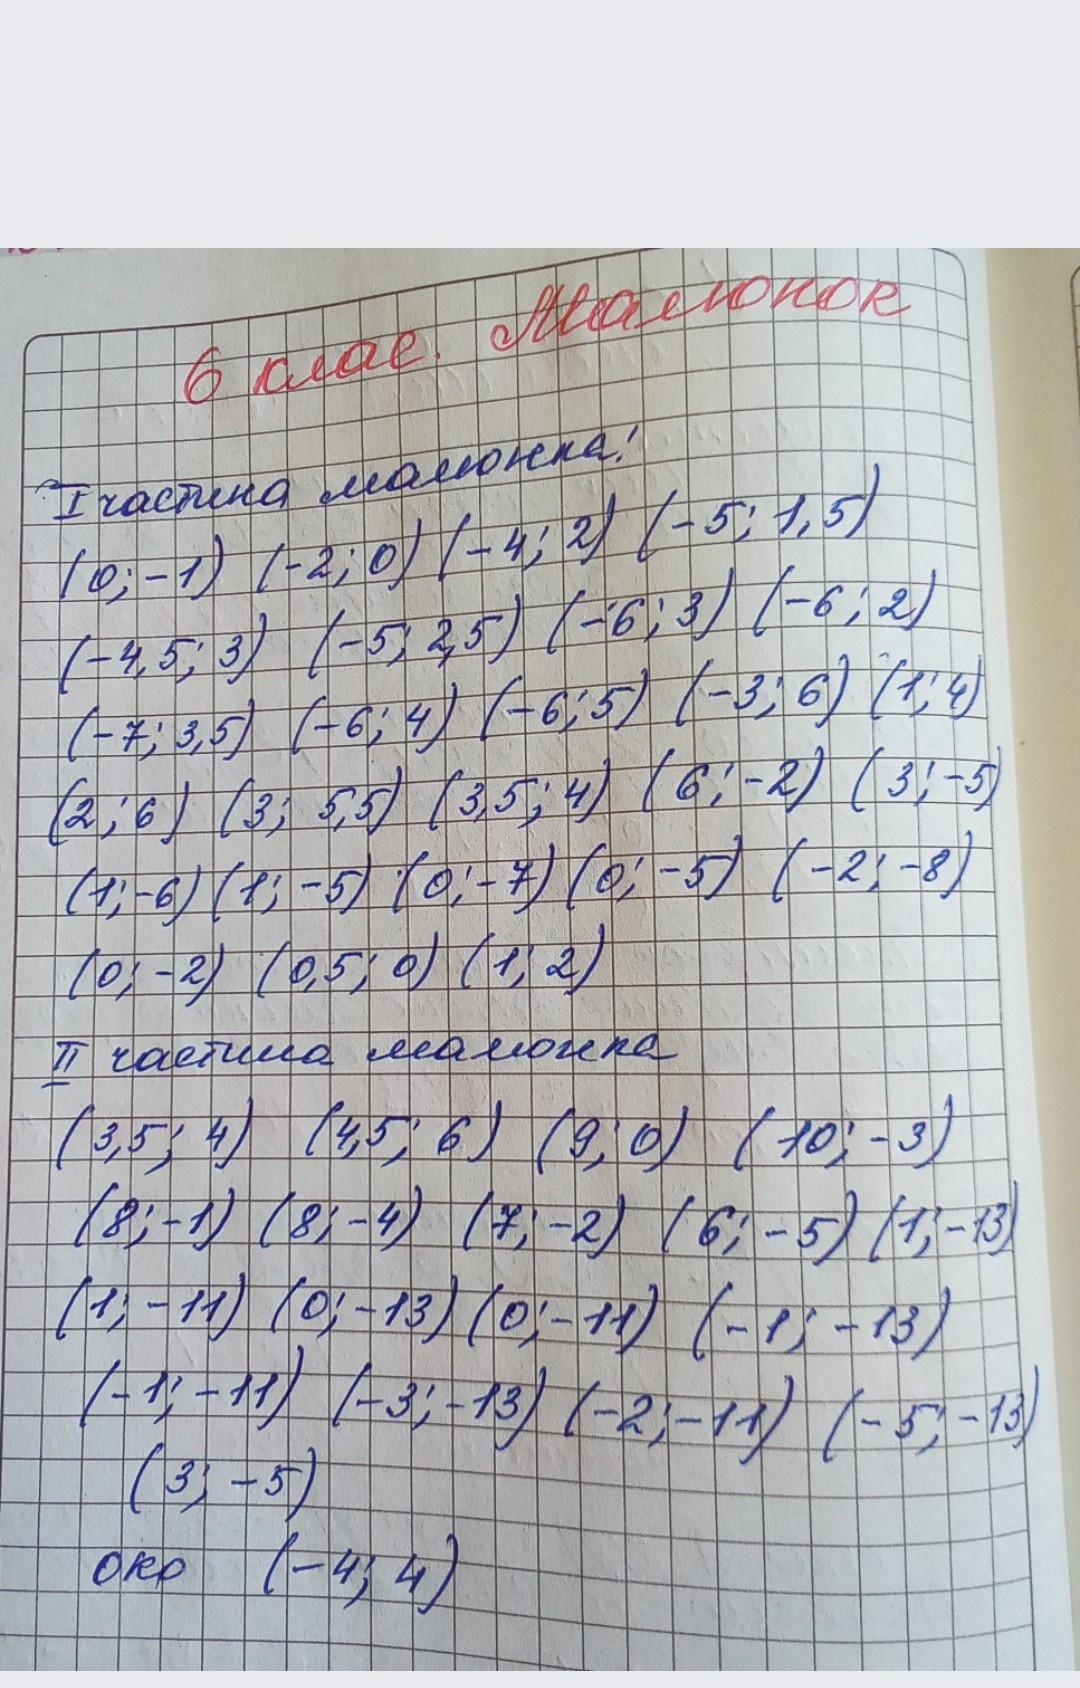 6 клас. Малюнок
I частина малюнка:
(0; -1) (-2; 0) (-4; 2) (-5; 1,5)
(-4,5; 3) (-5; 2,5) (-6; 3) (-6; 2)
(-7; 3,5) (-6; 4) (-6; 5) (-3; 6) (1; 4)
(2; 6) (3; 5,5) (3,5; 4) (6; -2) (3; -5)
(1; -6) (1; -5) (0; -7) (0; -5) (-2; -8)
(0; -2) (0,5; 0) (1; 2)
II частина малюнка
(3,5; 4) (4,5; 6) (9; 0) (10; -3)
(8; -1) (8; -4) (7; -2) (6; -5) (1; -13)
(1; -11) (0; -13) (0; -11) (-1; -13)
(-1; -11) (-3; -13) (-2; -11) (-5; -13)
(3; -5)
око (-4; 4)